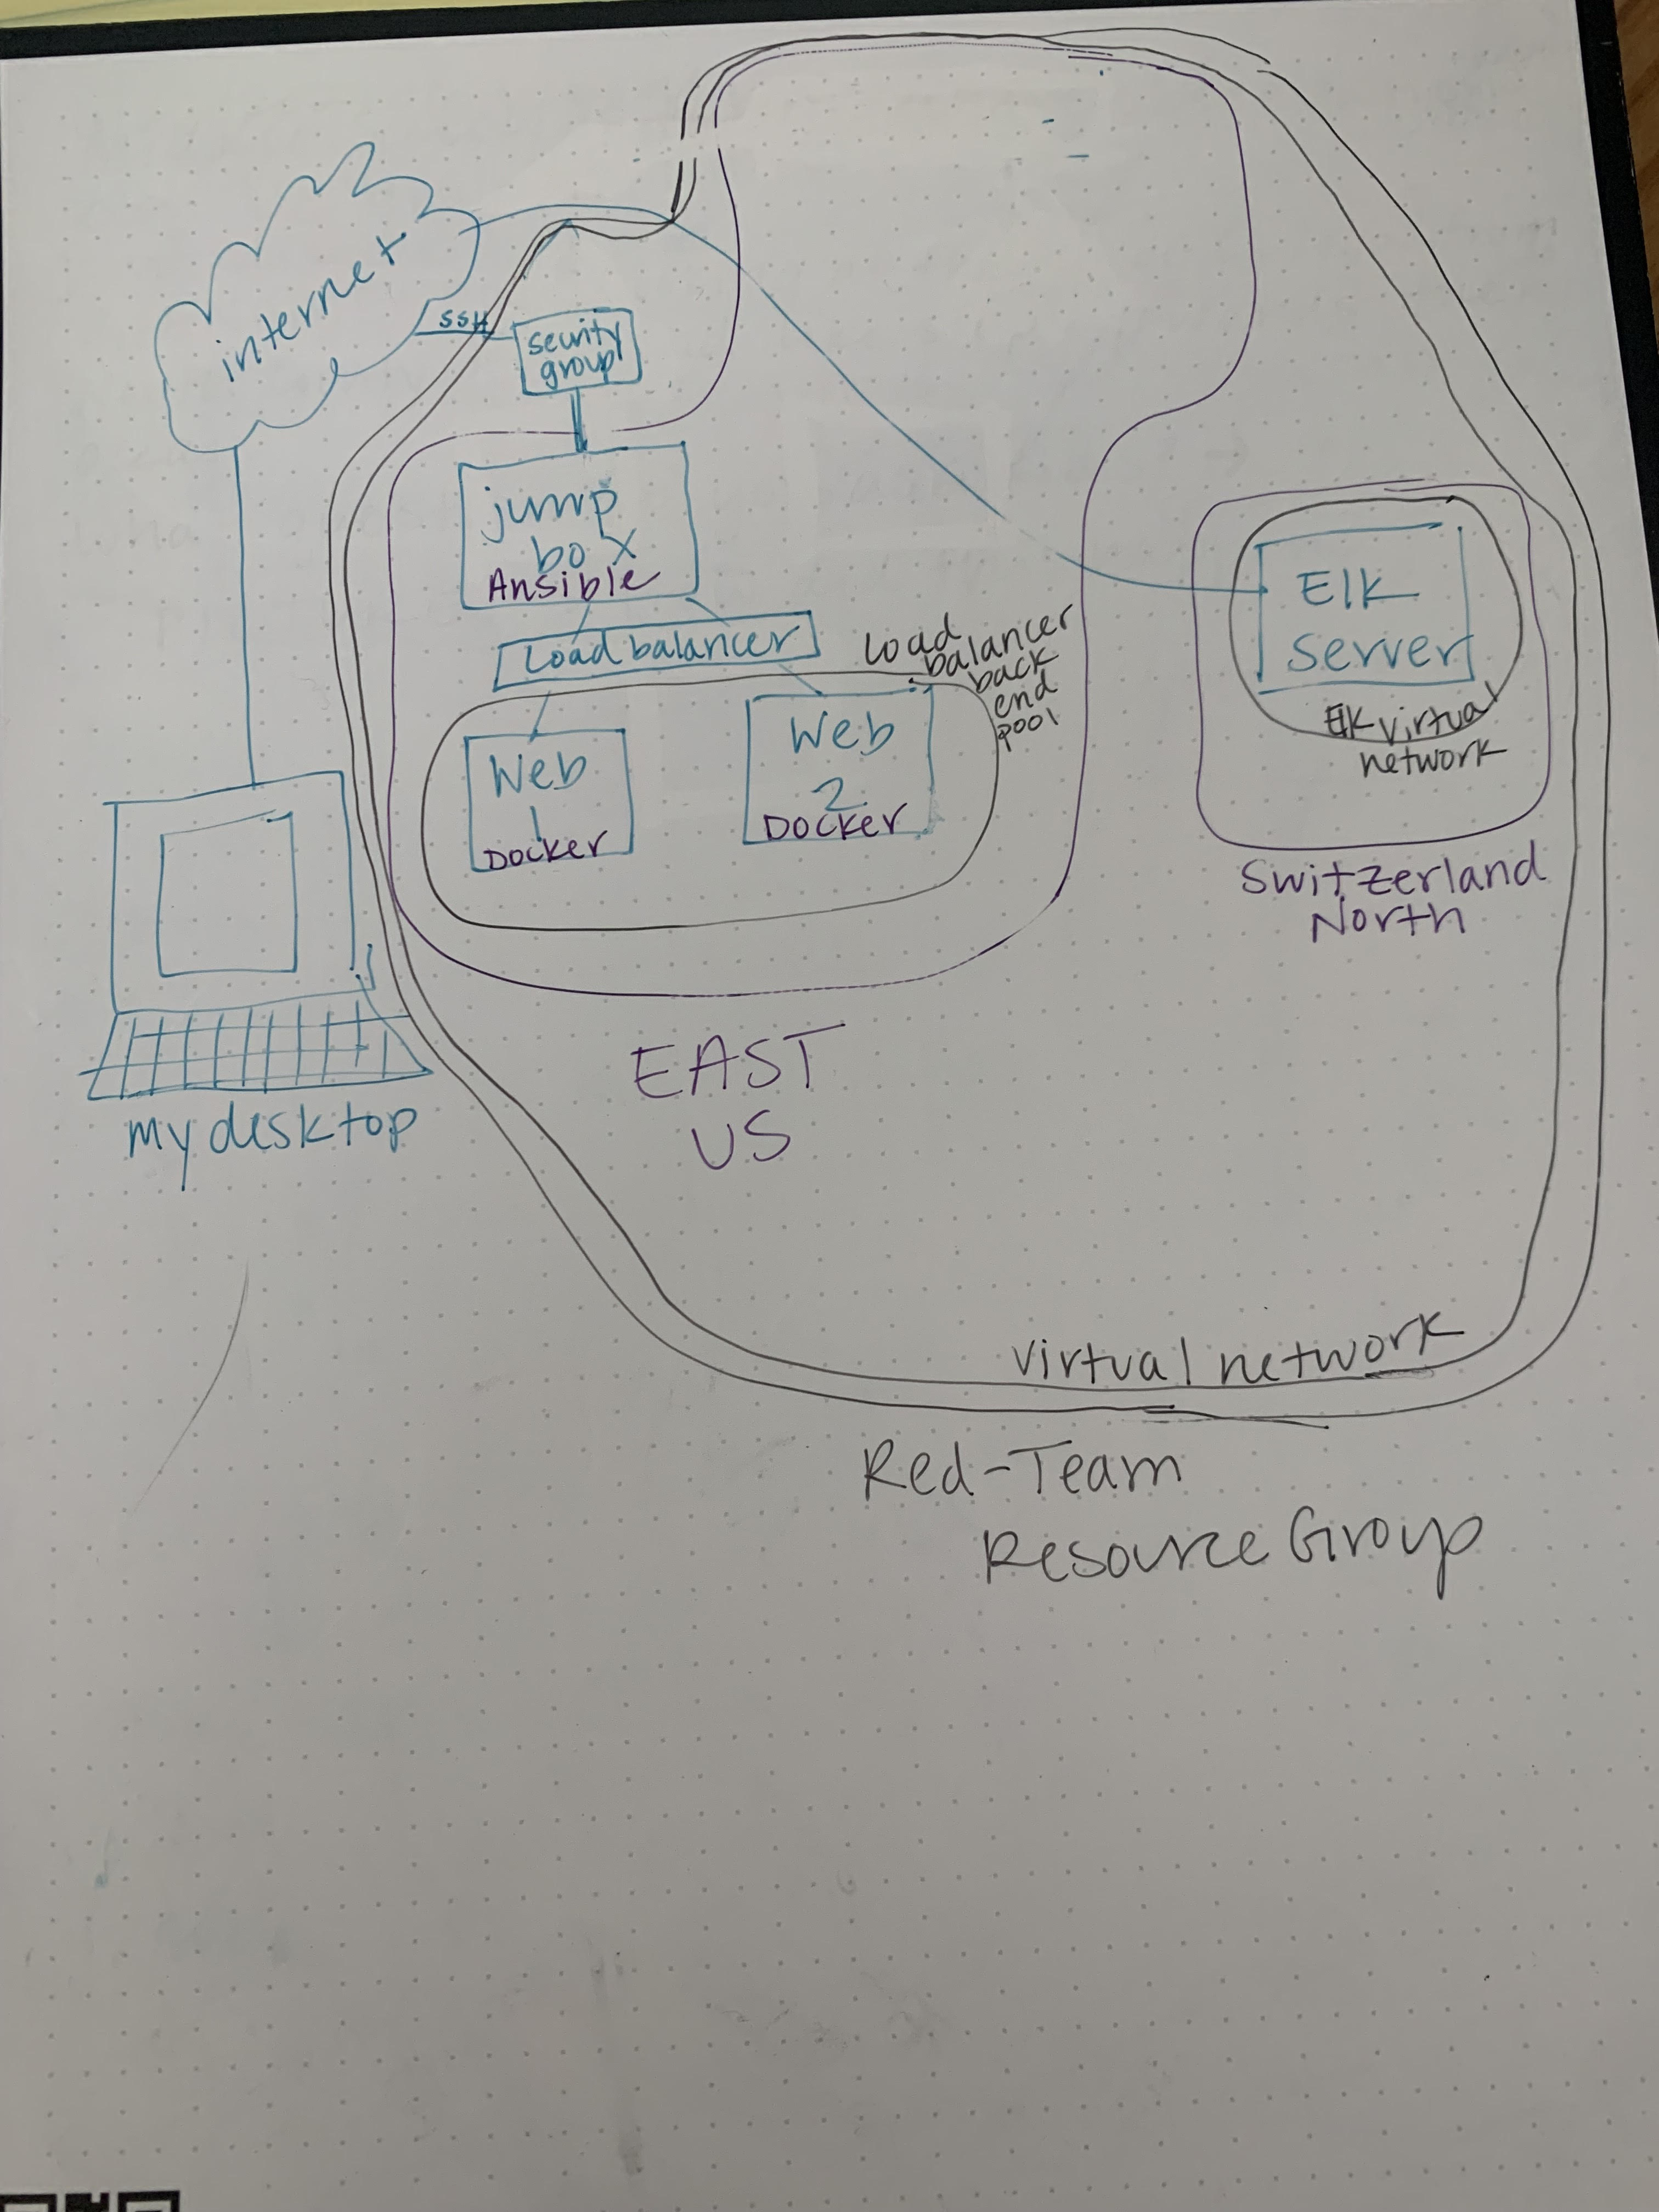 internet
SSH
security
group
jump
box
Ansible
Load balancer
Load
balancer
back
end
pool
Web
1
Docker
Web
2
Docker
Elk
Server
Elk virtual
network
Switzerland
North
my desktop
EAST
US
virtual network
Red-Team
Resource Group